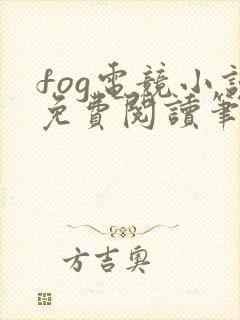 fog電競小說
免費閱讀筆
方吉奧